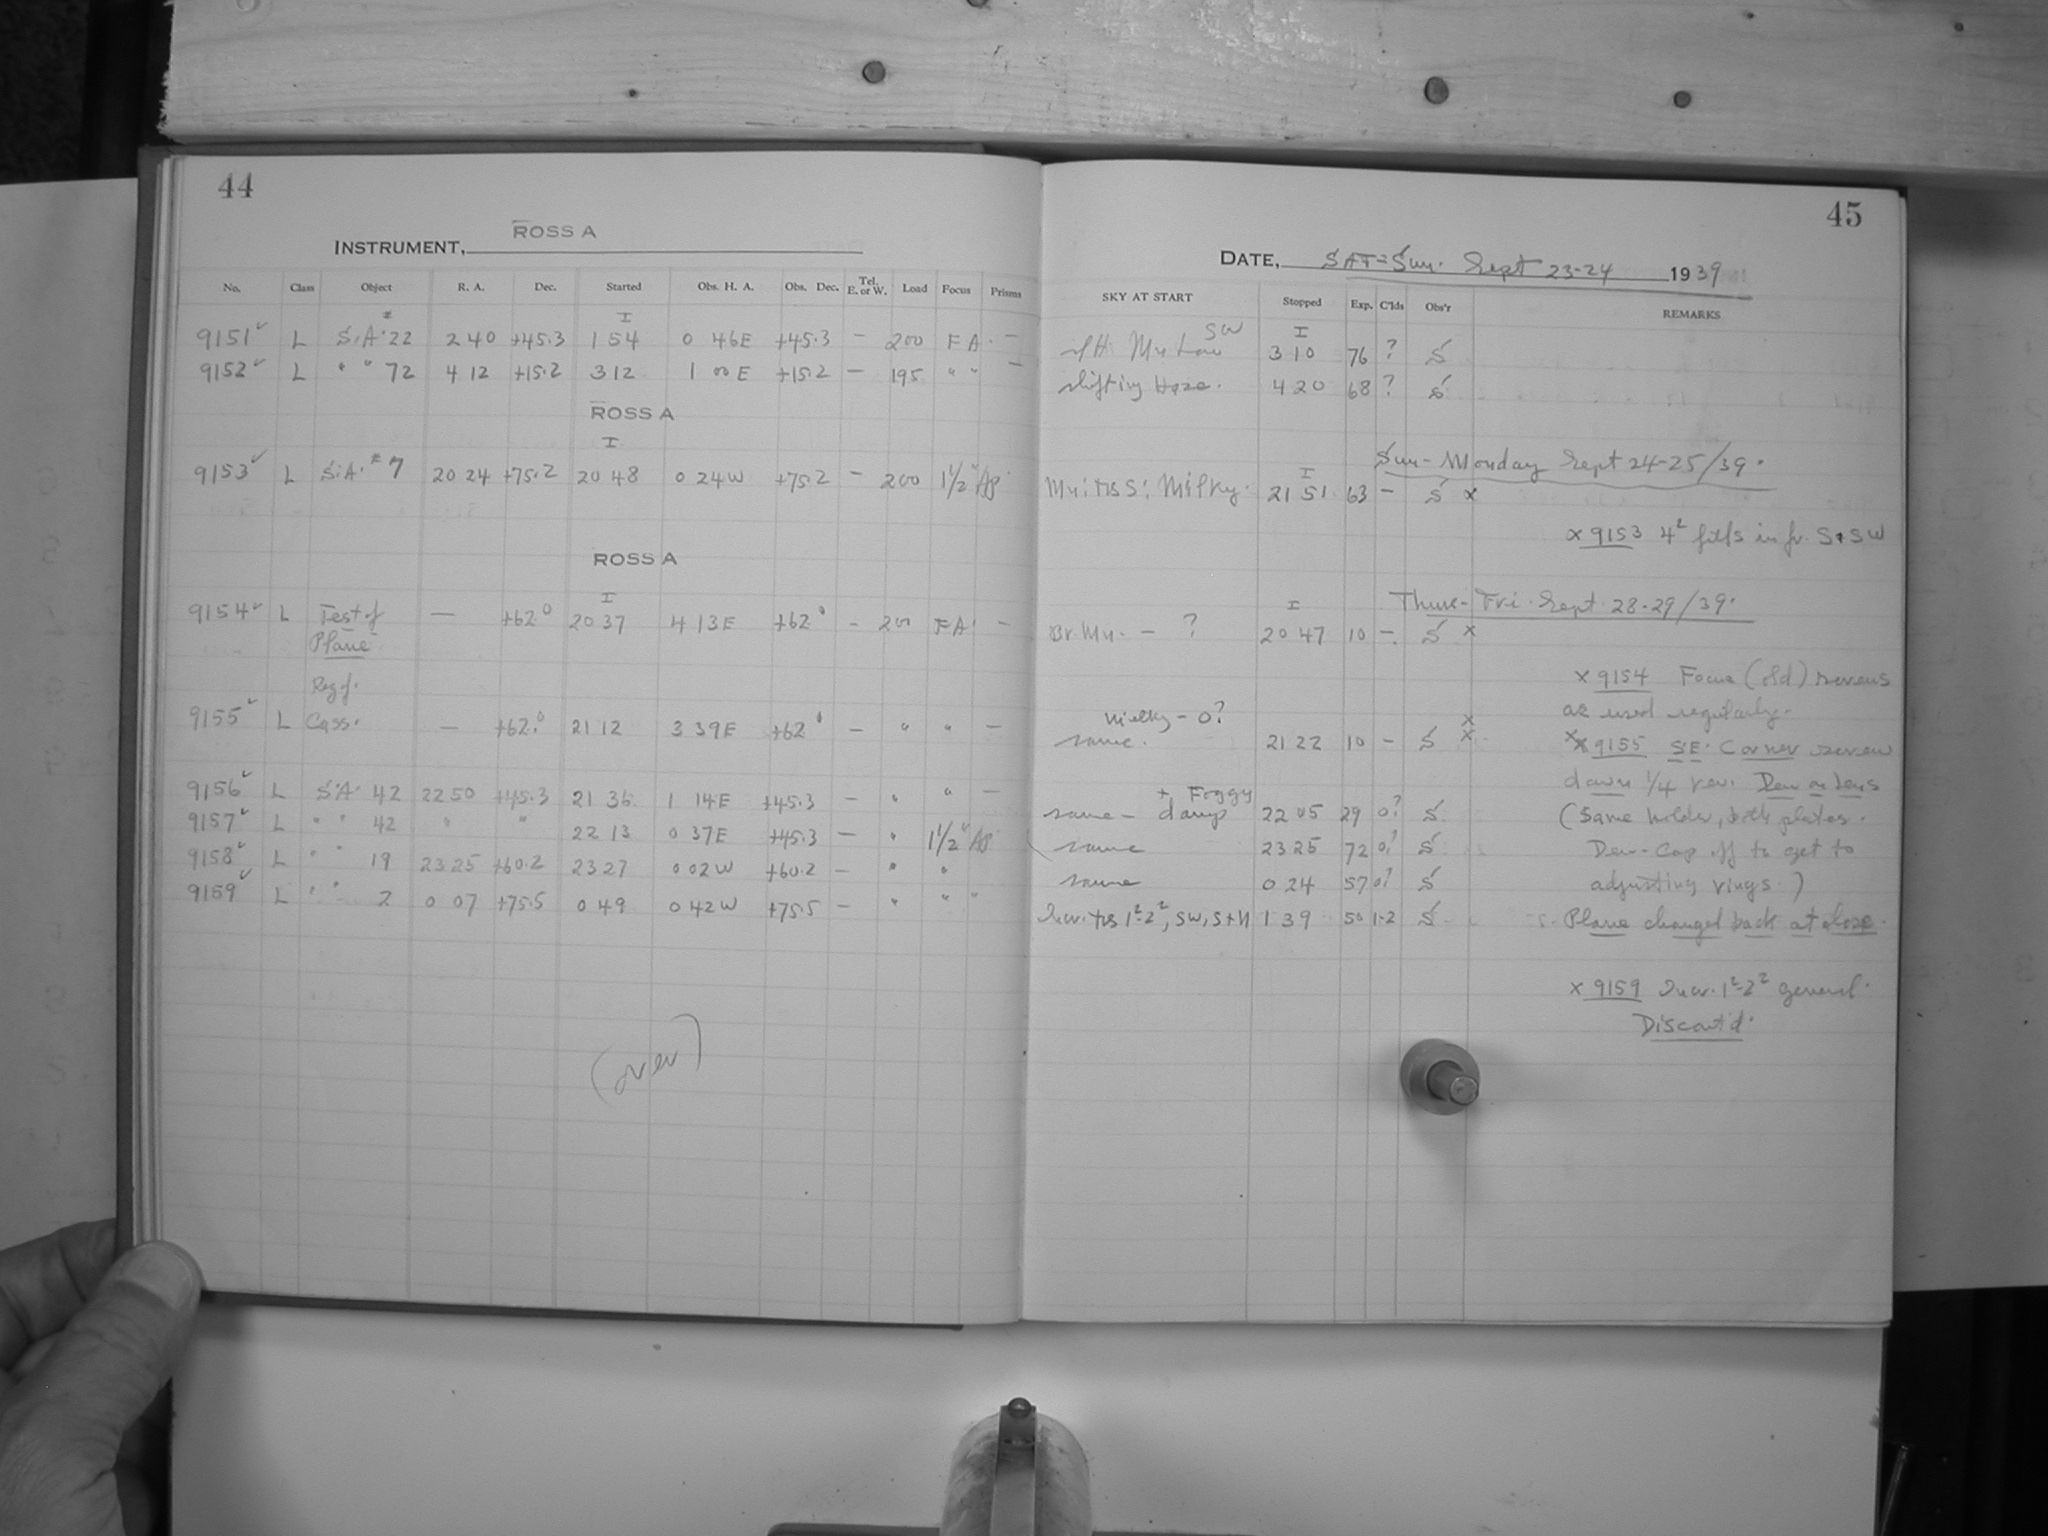 44
INSTRUMENT, ROSS A
No. Class Object R. A. Dec. Started Obs. H. A. Obs. Dec. Tel. E. or W. Load Focus Prisms
I
9151 ✓ L S.A. # 22 2 40 +45.3 1 54 0 46E +45.3 — 200 F A. —
9152 ✓ L " " 72 4 12 +15.2 3 12 1 00 E +15.2 — 195 " " —
ROSS A
I
9153 ✓ L S.A. # 7 20 24 +75.2 20 48 0 24W +75.2 — 200 1 1/2" Ap.
ROSS A
I
9154 ✓ L Test of — +62° 20 37 4 13E +62° - 200 FA. —
Plane
Reg. of
9155 ✓ L Cass. — +62° 21 12 3 39E +62° — " " —
9156 ✓ L S.A. 42 22 50 +45.3 21 36 1 14E +45.3 — " " —
9157 ✓ L " " 42 " " 22 13 0 37E +45.3 — " 1 1/2" Ap
9158 ✓ L " " 19 23 25 +60.2 23 27 0 02W +60.2 — " "
9159 ✓ L " " 2 0 07 +75.5 0 49 0 42W +75.5 — " " "
(over)
45
DATE, SAT-Sun. Sept 23-24 1939
SKY AT START Stopped Exp. C'lds Obs'r REMARKS
SW I
3 10 76 ? S
shifting Haze. 4 20 68 ? S
Sun-Monday Sept 24-25/39.
I
Milky. 21 51 63 — S x
x 9153 4² fills in fr. S+SW
Thurs-Fri. Sept. 28-29/39.
I
— ? 20 47 10 — S x
x 9154 Focus (old) screws
as used regularly.
Milky - 0?
same. 21 22 10 - S x x
xx 9155 SE. Corner screw
down 1/4 rev. Dew on Lens
+ Foggy
same — damp 22 05 29 0? S
(Same holder, both plates.
same 23 25 72 0? S
Dew-Cap off to get to
same 0 24 57 0? S
adjusting rings.)
Incr. 1²-2², SW, S+N 1 39 50 1-2 S
Plane changed back at close.
x 9159 Incr. 1²-2² general.
Discont'd.